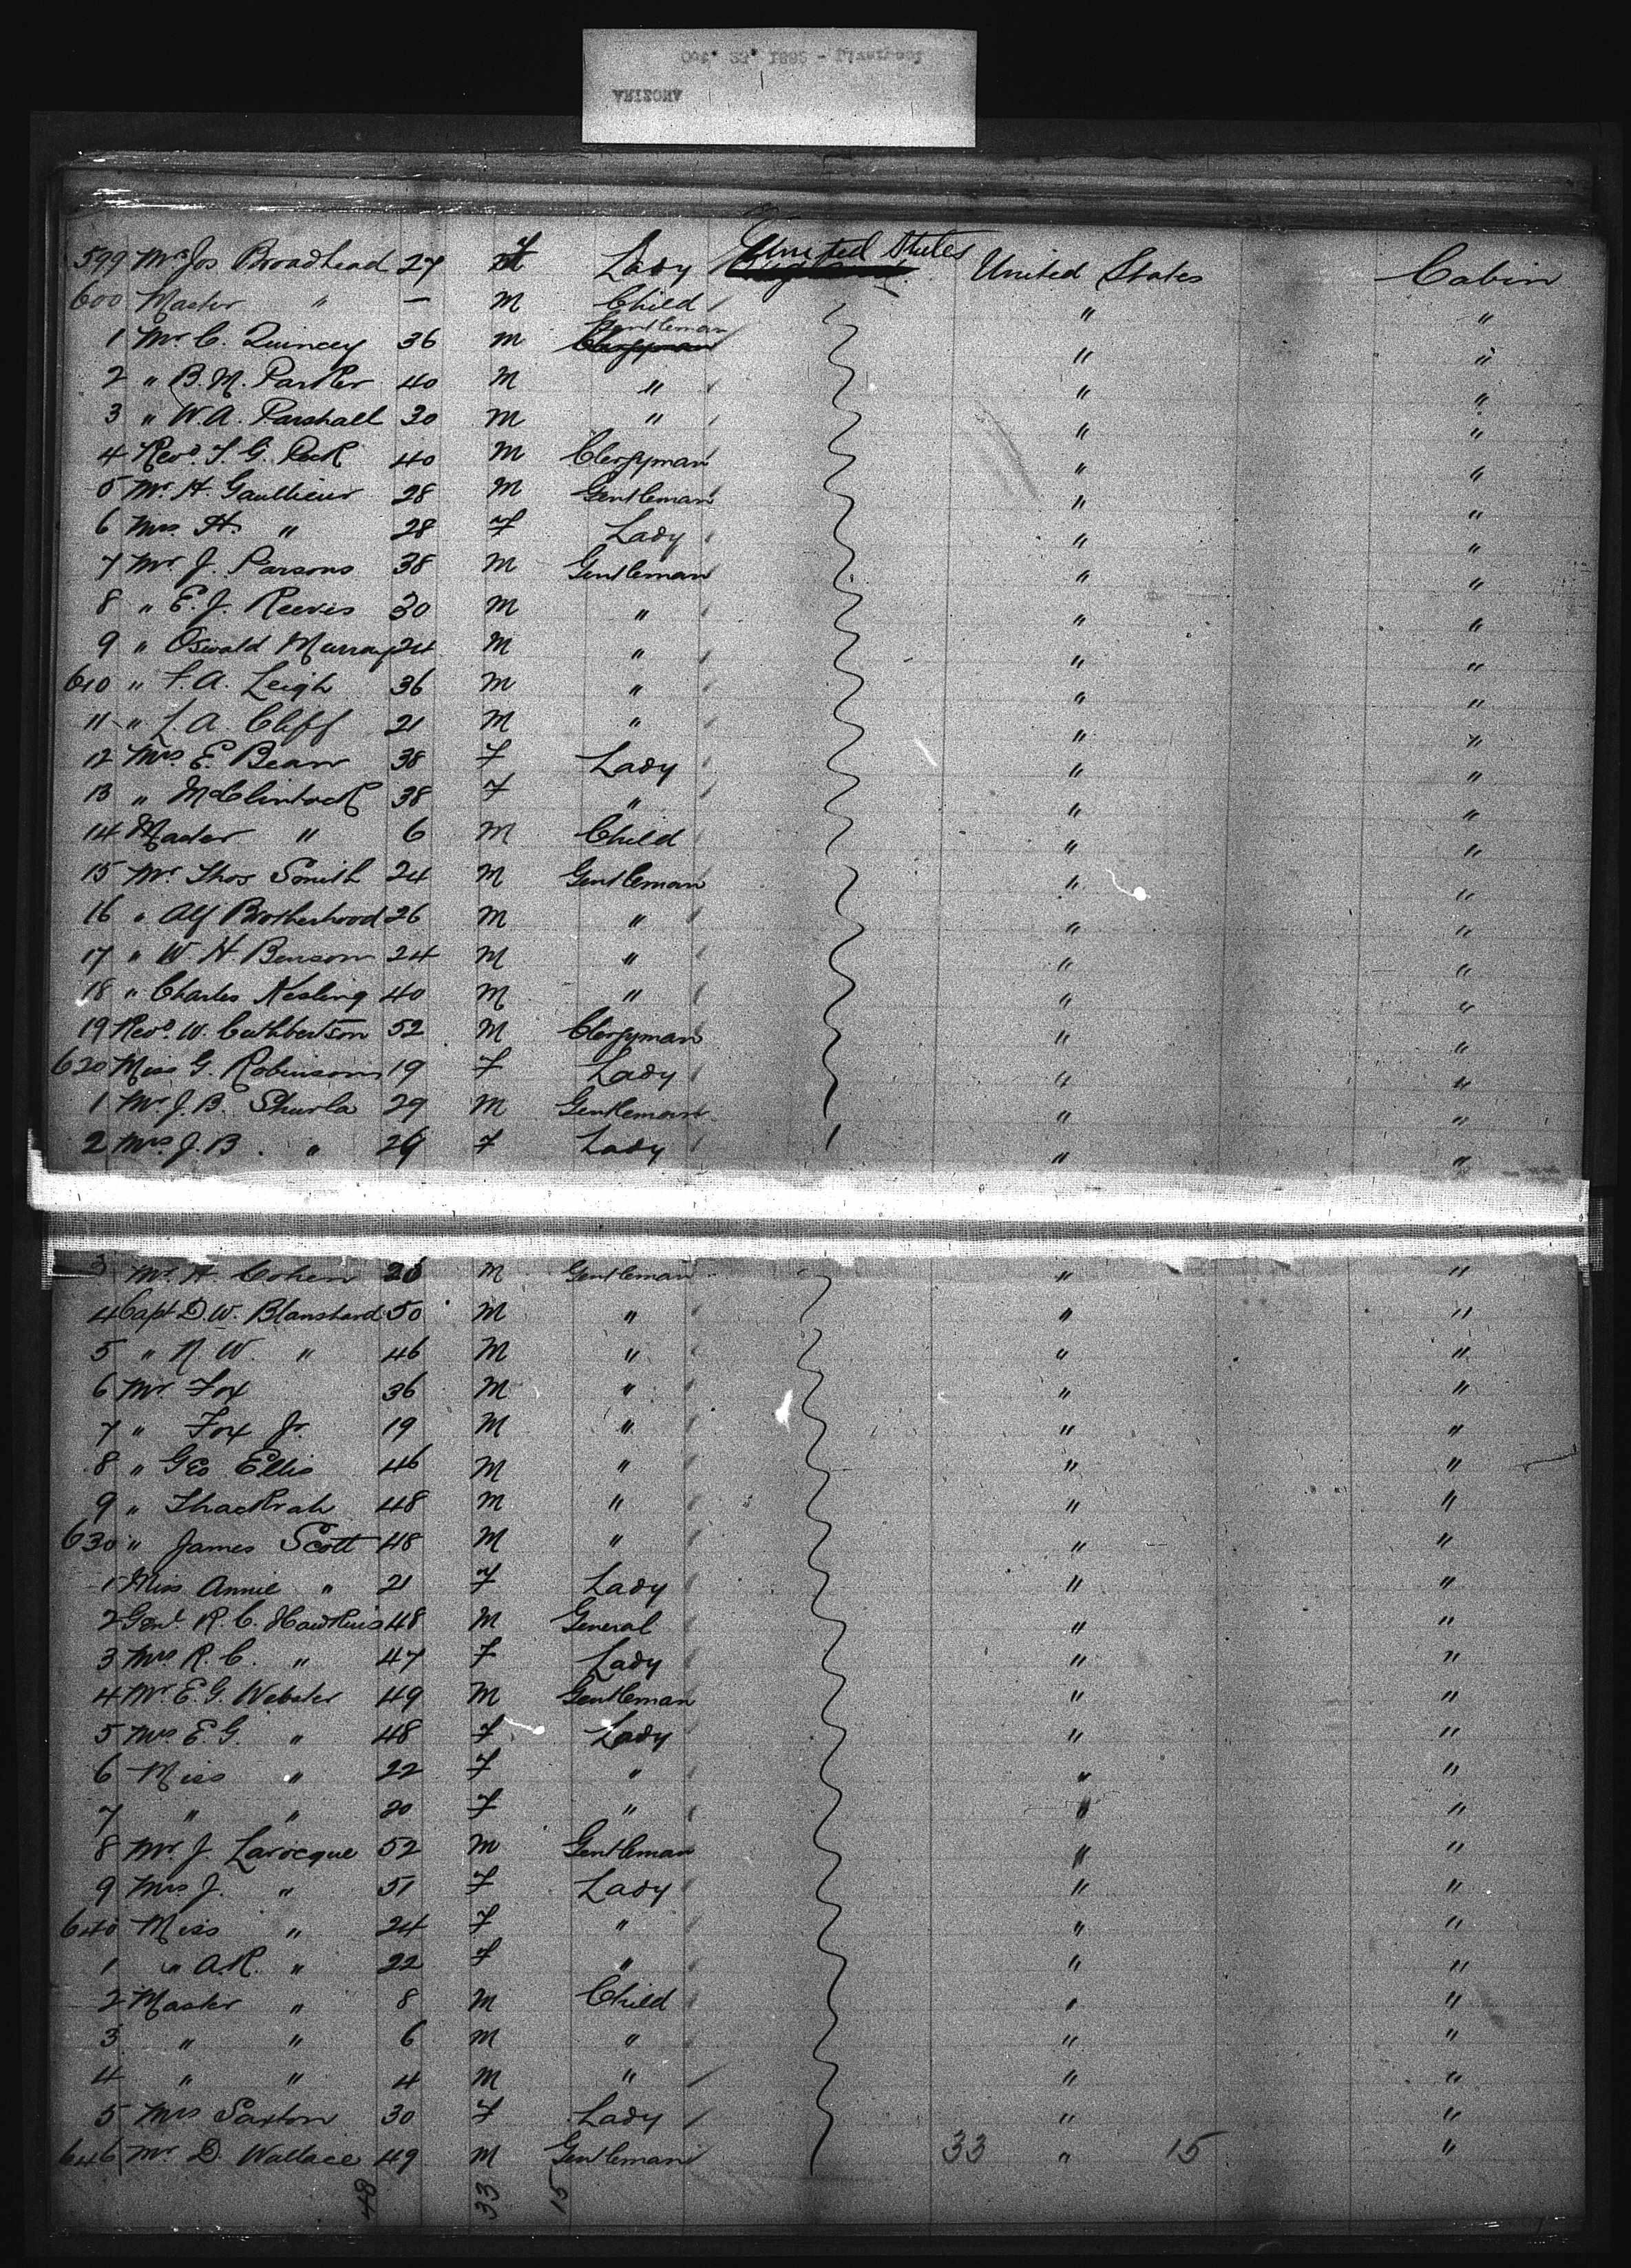 Oct. 23. 1882 - Liverpool
ARIZONA
United States
599 Mrs Jos Broadhead 27 F Lady United States Cabin
600 Master " — M Child " "
Gentleman
1 Mr C. Quincey 36 M Clergyman " "
2 " B.M. Parker 40 M " " "
3 " W.A. Parshall 30 M " " "
4 Revd. J. G. Peck 40 M Clergyman " "
5 Mr. H. Gaullieur 28 M Gentleman " "
6 Mrs. H. " 28 F Lady " "
7 Mr J. Parsons 38 M Gentleman " "
8 " E. J. Reeves 30 M " " "
9 " Oswald Murray 24 M " " "
610 " F. A. Leigh 36 M " " "
11 " L. A. Cliff 21 M " " "
12 Mrs. E. Bean 38 F Lady " "
13 " McClintock 38 F " " "
14 Master " 6 M Child " "
15 Mr. Thos Smith 24 M Gentleman " "
16 " Alf Brotherhood 26 M " " "
17 " W H Benson 24 M " " "
18 " Charles Nesling 40 M " " "
19 Revd. W. Cuthbertson 52 M Clergyman " "
620 Miss G. Robinson 19 F Lady " "
1 Mr. J. B. Shurla 29 M Gentleman " "
2 Mrs. J. B. " 26 F Lady " "
3 Mr. H. Cohen 26 M Gentleman " "
4 Capt D. W. Blanshard 50 M " " "
5 " N. W. " 46 M " " "
6 Mr. Fox 36 M " " "
7 " Fox Jr. 19 M " " "
8 " Geo Ellis 46 M " " "
9 " Thackrah 48 M " " "
630 " James Scott 48 M " " "
1 Miss Annie " 21 F Lady " "
2 Genl. R. C. Hawkins 48 M General " "
3 Mrs R. C. " 47 F Lady " "
4 Mr. E. G. Webster 49 M Gentleman " "
5 Mrs E. G. " 48 F Lady " "
6 Miss " 22 F " " "
7 " " 20 F " " "
8 Mr. J. Larocque 52 M Gentleman " "
9 Mrs J. " 51 F Lady " "
640 Miss " 24 F " " "
1 " A.R. " 22 F " " "
2 Master " 8 M Child " "
3 " " 6 M " " "
4 " " 4 M " " "
5 Mrs Saxton 30 F Lady " "
646 Mr D. Wallace 49 M Gentleman 33 " 15 "
48 33 15